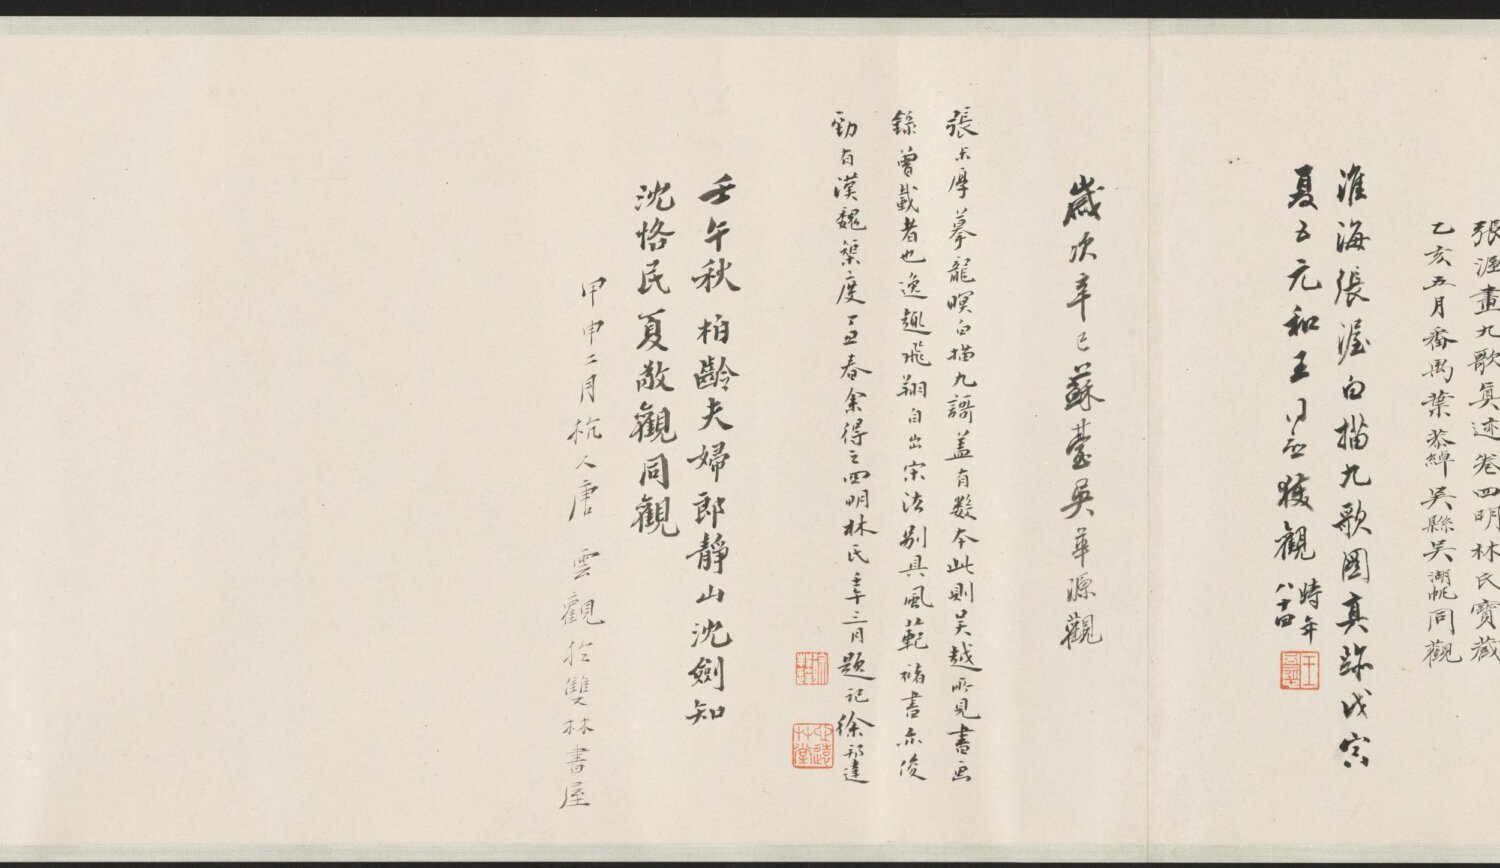 張渥畫九歌真迹卷四明林氏寶藏
乙亥五月番禺葉恭綽吳縣吳湖帆同觀
淮海張渥白描九歌圖真跡戊寅
夏五元和王同愈獲觀時年
八十四
歲次辛巳蘇臺吳華源觀
張未厚摹龍眠白描九謌蓋有數本此則吳越所見書画
錄曾載者也逸趣飛翔自出宋法別具風範褚書亦俊
勁有漢魏榘度丁丑春余得之四明林氏壬午三月題記徐邦達
壬午秋柏齡夫婦郎靜山沈劍知
沈恪民夏敬觀同觀
甲申二月杭人唐雲觀於雙林書屋